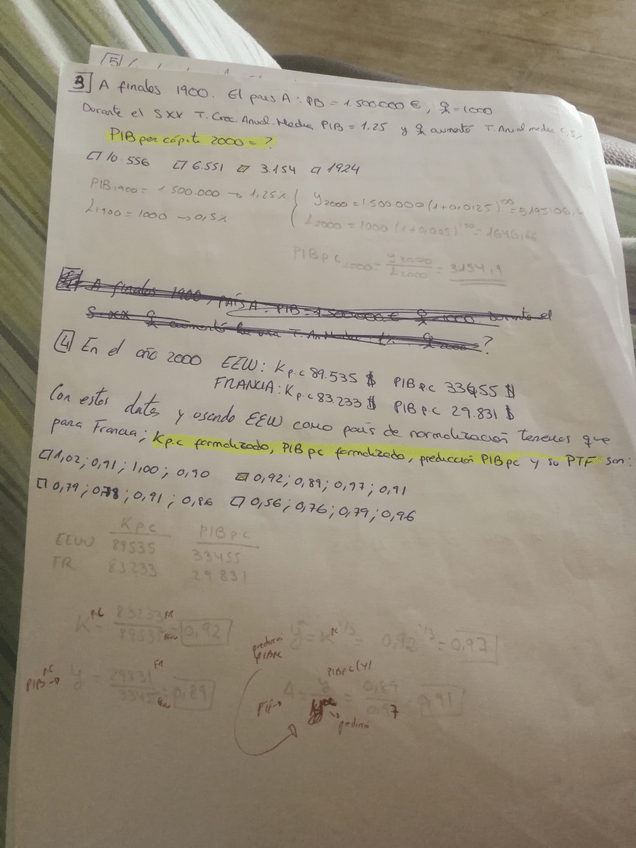 5
3 A finales 1900. El país A: PIB = 1.500.000 €, L = 1000
Durante el S XX T. Crec Anual. Media PIB = 1.25 y L aumentó T. Anual media
PIB per cápita 2000 = ?
10.556 6.551 3.154 1924
PIB 1900 = 1500.000 → 1,25% y2000 = 1500000 (1+0,0125)^100 =
L1900 = 1000 → 0,5% L2000 = 1000 (1+0,005)^100 = 1646,66
PIBpc2000 = y2000 / L2000 = 3154,9
A finales 1900 PAÍS A: PIB = 1.500.000 € L = 1000 Durante el
S.XX L aumentó ?
4 En el año 2000 EEUU: Kp.c 89.535 $ PIBpc 33455 $
FRANCIA: Kp.c 83233 $ PIBpc 29.831 $
Con estos datos y usando EEUU como país de normalización tenemos que
para Francia; Kp.c formalizado, PIBpc formalizado, predicción PIBpc y su PTF son:
1,02; 0,91; 1,00; 0,90 0,92; 0,89; 0,97; 0,91
0,79; 0,78; 0,91; 0,86 0,56; 0,76; 0,79; 0,96
Kpc PIBpc
EEUU 89535 33455
FR 83233 29831
K pc = 83233 FR / 89535 EEUU = 0,92 y = K 1/3 = 0,92 1/3 = 0,97
PIB pc → y = 29831 FR / 33455 EEUU = 0,89 PTF → A = y = 0,89 / 0,97 = 0,91